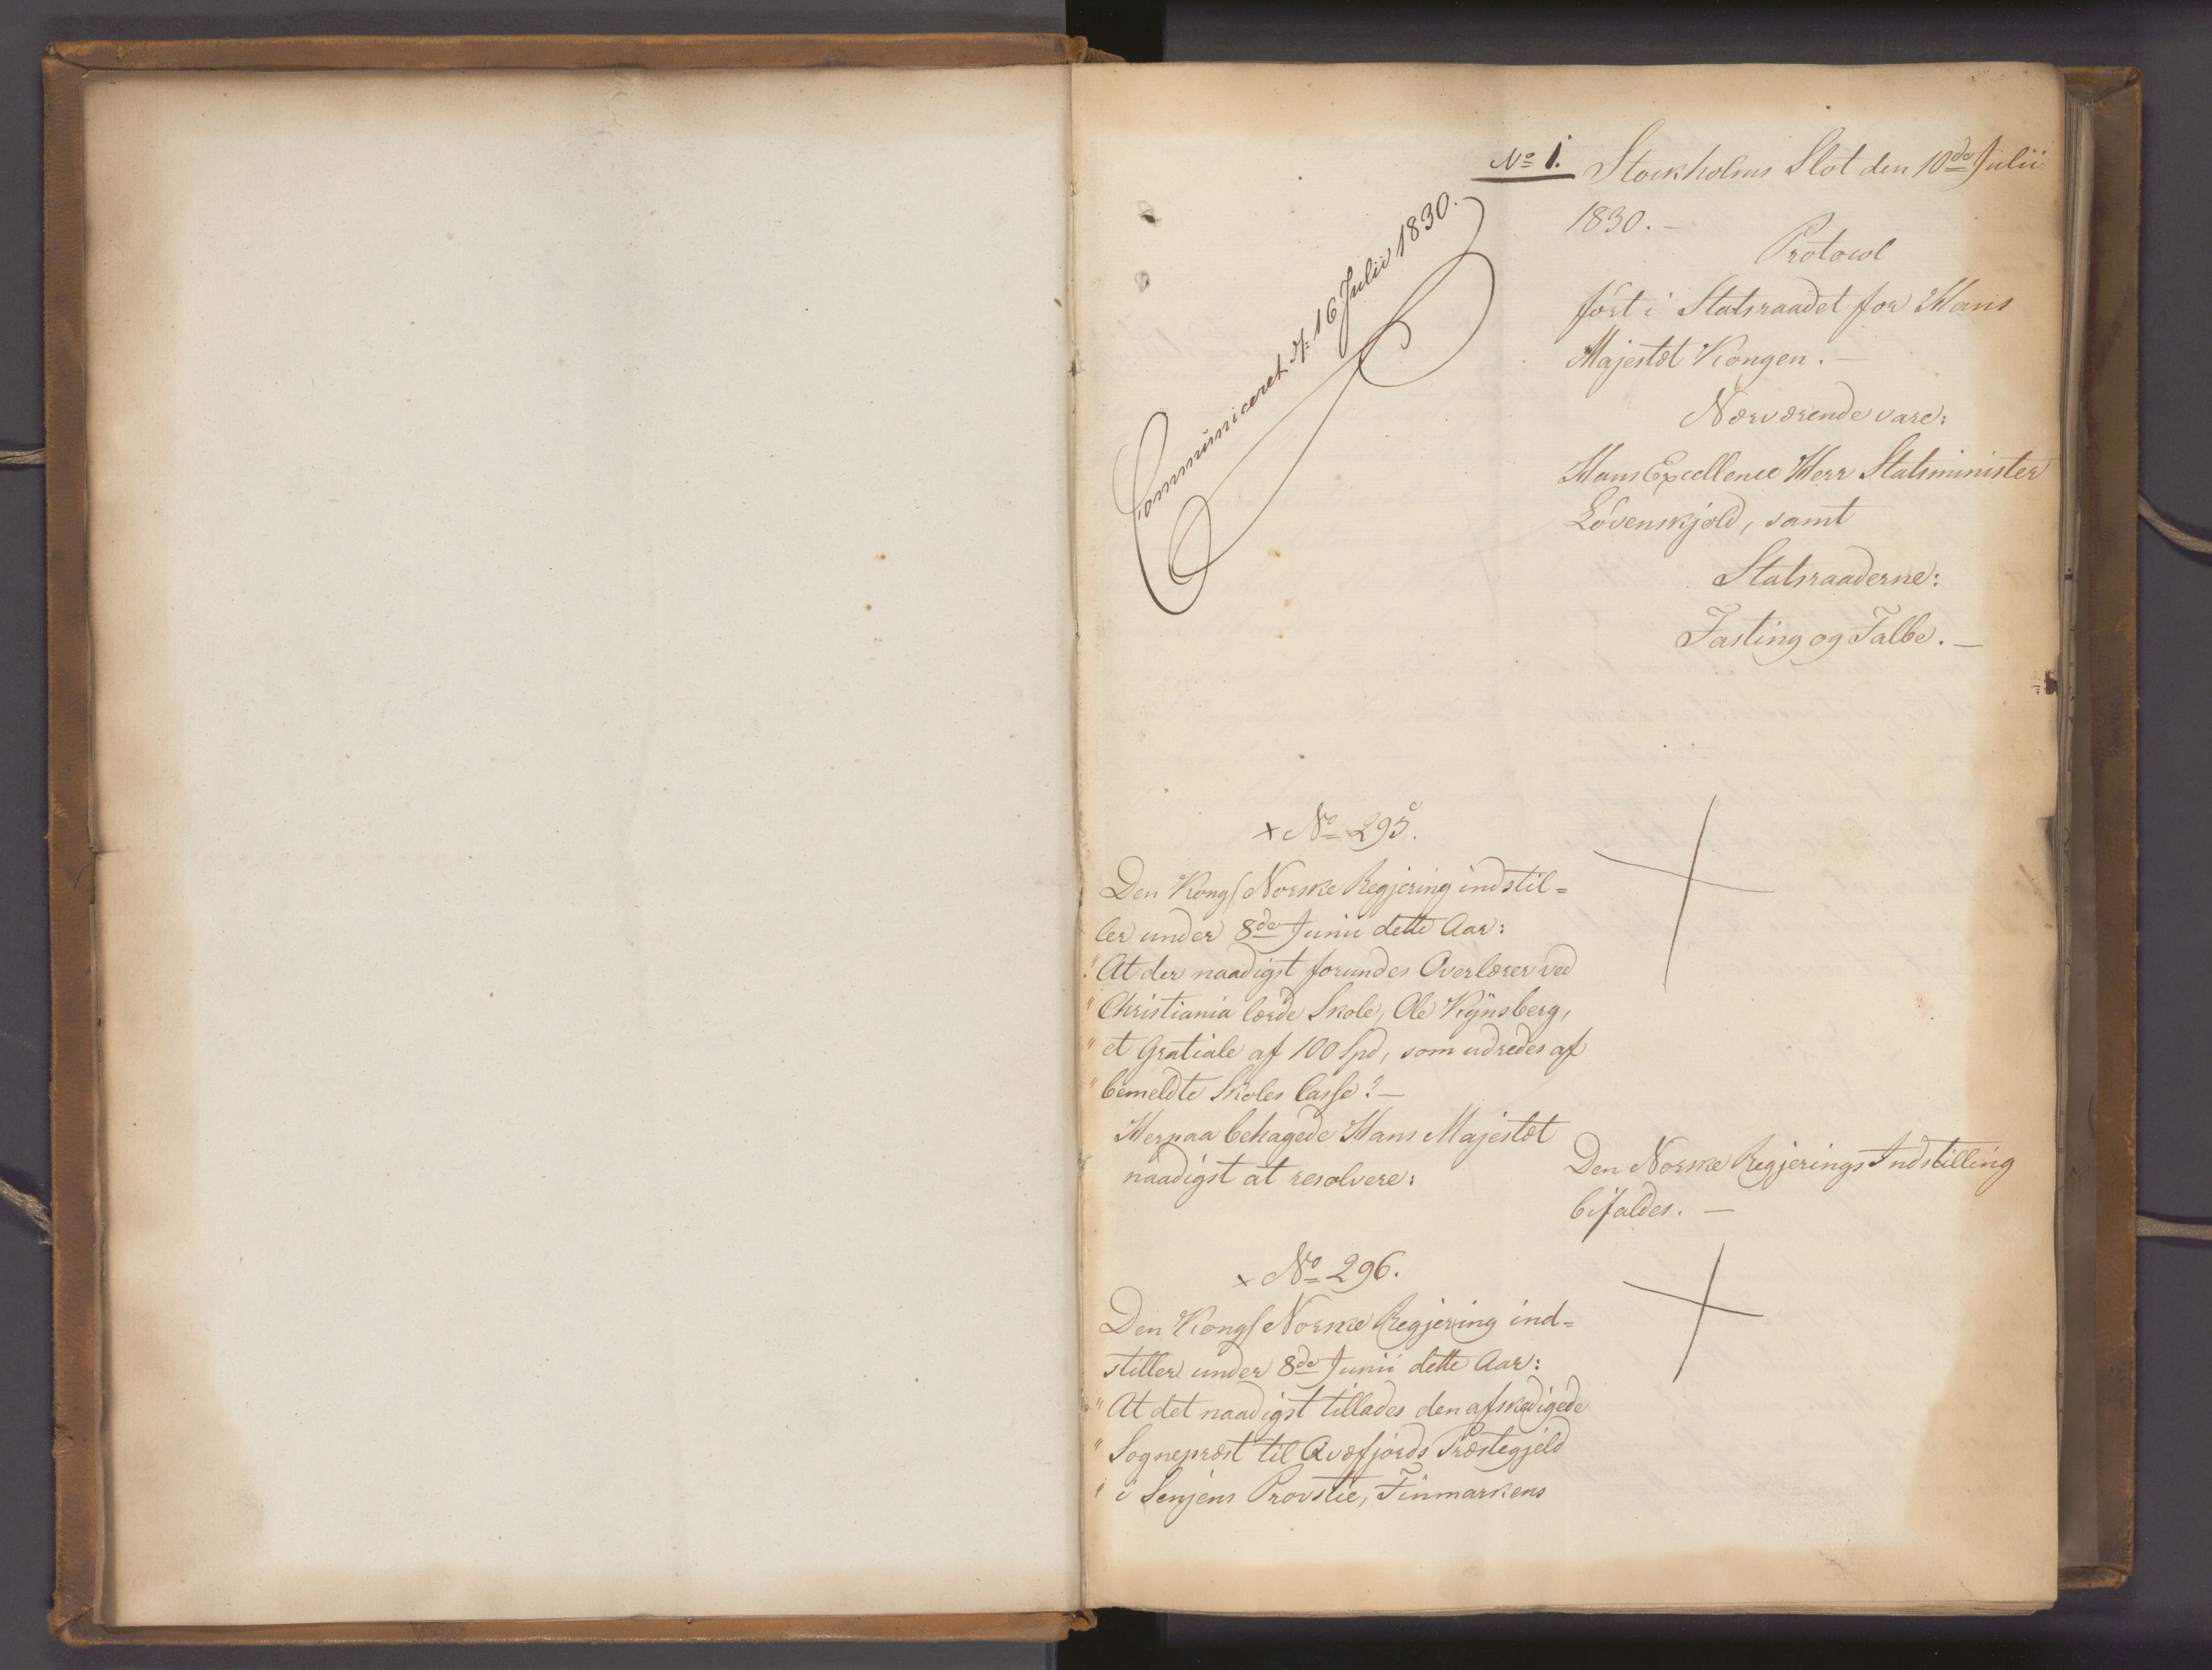 No 1. Stockholms Slot den 10de Julii
1830. –
Protocol
ført i Statsraadet for Hans
Majestæt Kongen. –
Nærværende vare:
Hans Excellence Herr Statsminister
Løvenskjold, samt
Statsraaderne:
Fasting og Falbe. –
Communiceret d: 16 Julii 1830.
x No 295.
Den Kongl Norske Regjering indstil=
ler under 8de Junii dette Aar:
"At der naadigst forundes Overlærer ved
"Christiania lærde Skole, Ole Kynsberg,
"et Gratiale af 100 Spd, som udredes af
"bemeldte Skoles Casse". –
Herpaa behagede Hans Majestæt
naadigst at resolvere:
Den Norske Regjerings Indstilling
bifaldes. –
x No 296.
Den Kongl Norske Regjering ind=
stiller under 8de Junii dette Aar:
"At det naadigst tillades den afskedigede
"Sognepræst til Qvæfjords Præstegjeld
"i Senjens Provstie, Finmarkens